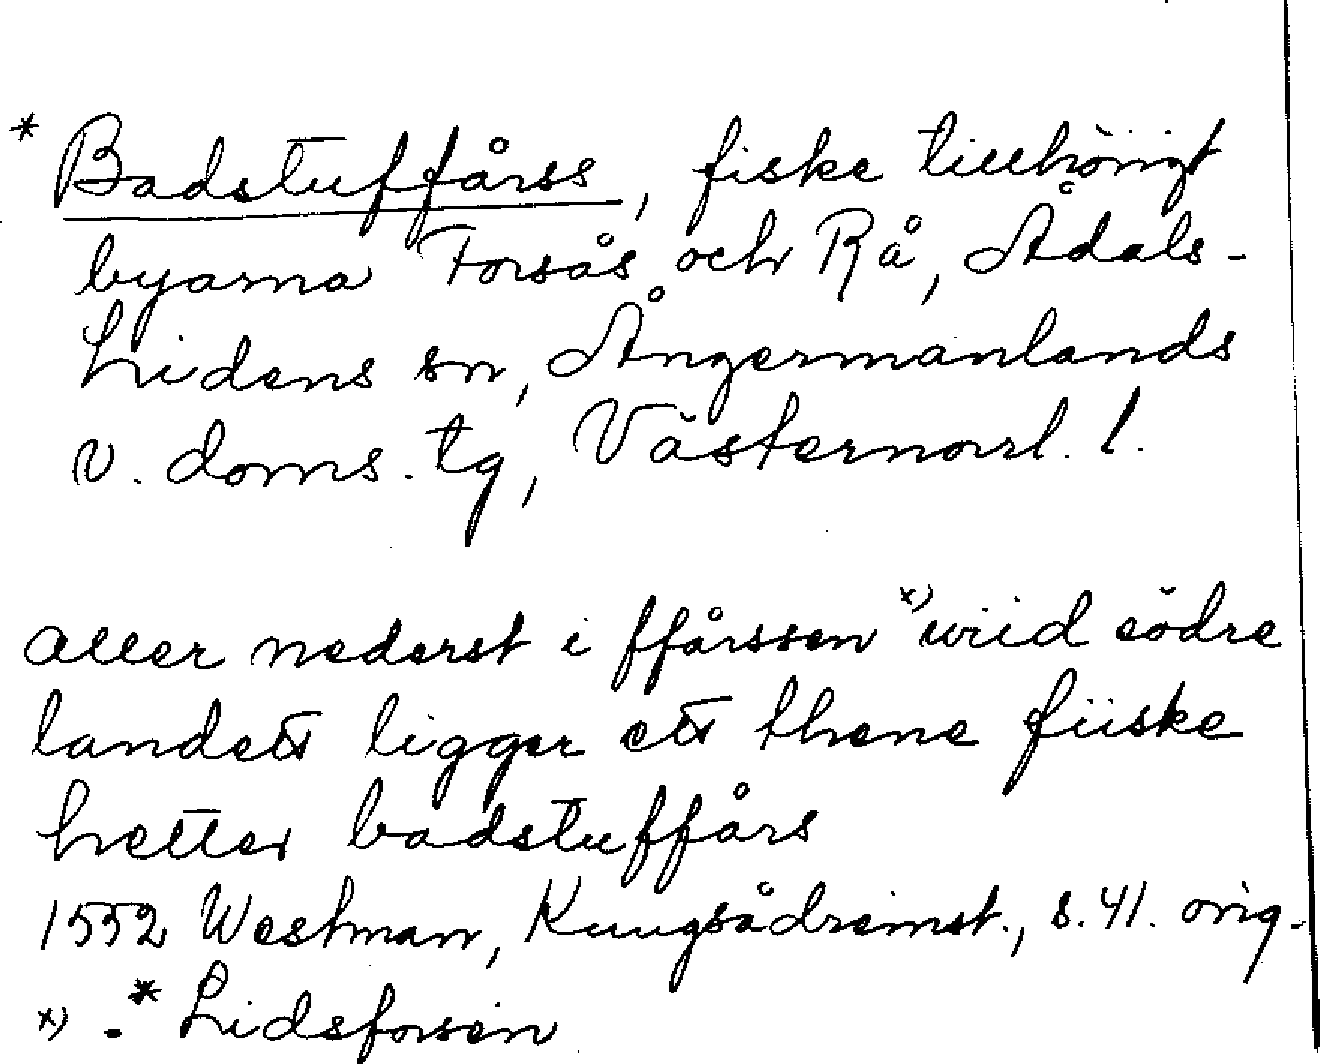 * Badstuffårss, fiske tillhörigt
byarna Forsås och Rå, Ådals-
Lidens sn, Ångermanlands
v. doms. tg, Västernorrl. l.
aller nederst i ffårssen x) wiid södre
landett ligger ett thene fiiske
hetter badstuffårs
1552 Westman, Kungsådreinst., s. 41. orig.
x) .* Lidsforsen